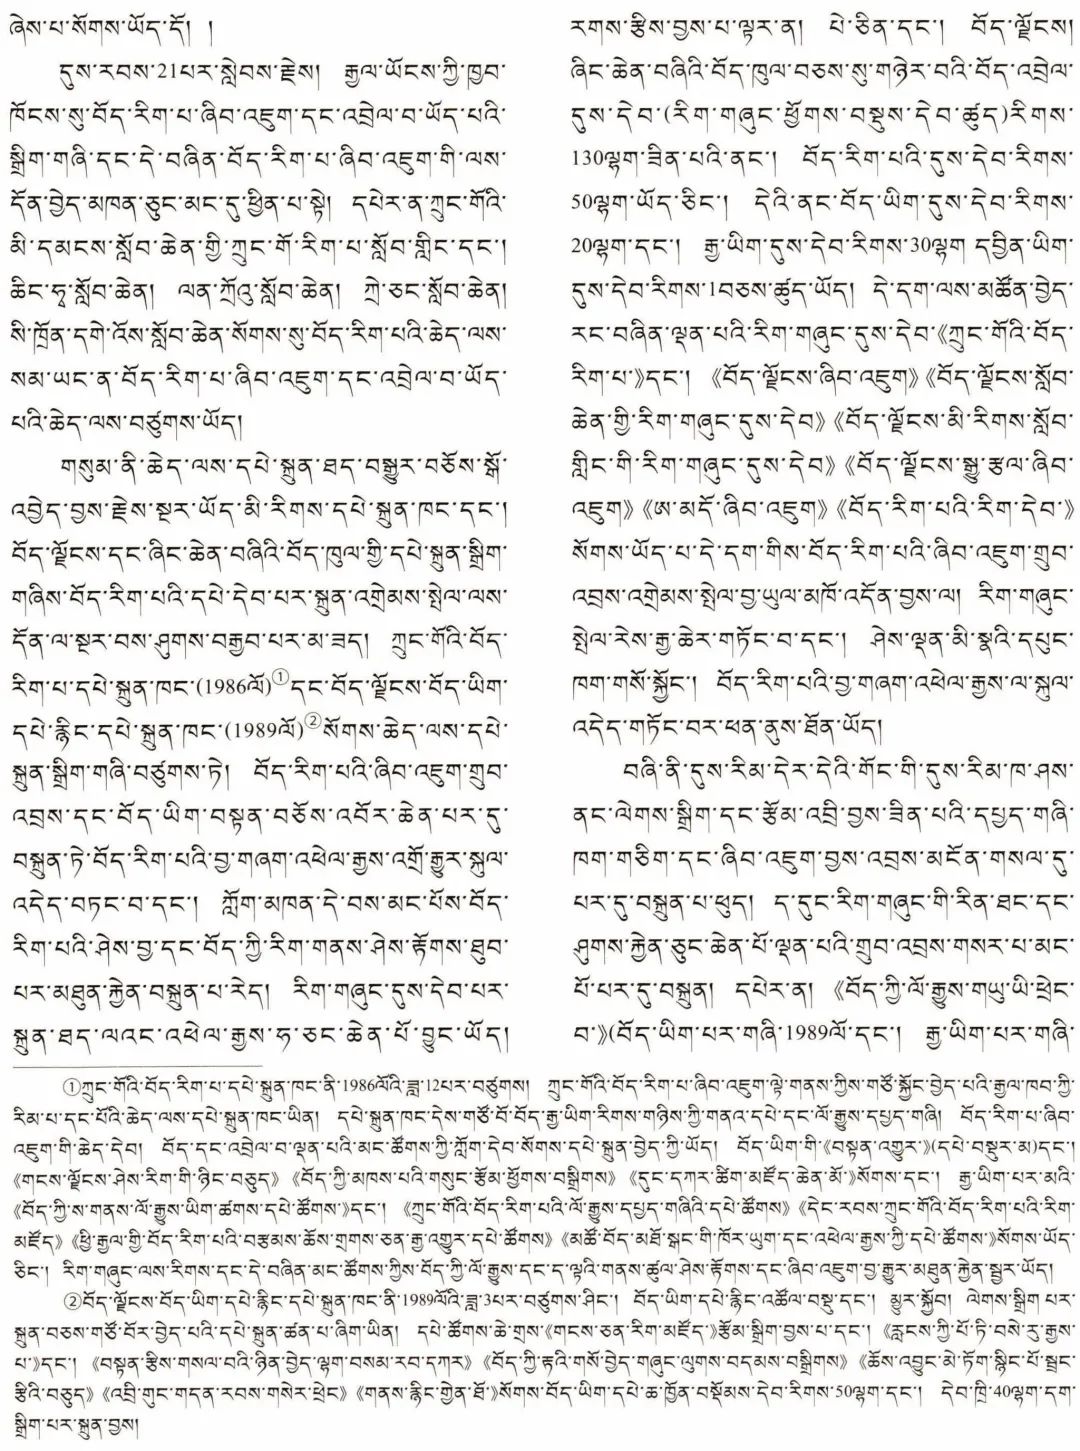 ཞེས་པ་སོགས་ཡོད་དོ། །
དུས་རབས་21པར་སླེབས་རྗེས། རྒྱལ་ཡོངས་ཀྱི་ཁྱབ་
ཁོངས་སུ་བོད་རིག་པ་ཞིབ་འཇུག་དང་འབྲེལ་བ་ཡོད་པའི་
སྒྲིག་གཞི་དང་དེ་བཞིན་བོད་རིག་པ་ཞིབ་འཇུག་གི་ལས་
དོན་བྱེད་མཁན་ཅུང་མང་དུ་ཕྱིན་པ་སྟེ། དཔེར་ན་ཀྲུང་གོའི་
མི་དམངས་སློབ་ཆེན་གྱི་ཀྲུང་གོ་རིག་པ་སློབ་གླིང་དང་།
ཆིང་ཧྭ་སློབ་ཆེན། ལན་ཀྲོའུ་སློབ་ཆེན། ཀྲེ་ཅང་སློབ་ཆེན།
སི་ཁྲོན་དགེ་འོས་སློབ་ཆེན་སོགས་སུ་བོད་རིག་པའི་ཆེད་ལས་
སམ་ཡང་ན་བོད་རིག་པ་ཞིབ་འཇུག་དང་འབྲེལ་བ་ཡོད་
པའི་ཆེད་ལས་བཙུགས་ཡོད།
གསུམ་ནི་ཆེད་ལས་དཔེ་སྐྲུན་ཐད་བསྒྱུར་བཅོས་སྒོ་
འབྱེད་བྱས་རྗེས་སྔར་ཡོད་མི་རིགས་དཔེ་སྐྲུན་ཁང་དང་།
བོད་ལྗོངས་དང་ཞིང་ཆེན་བཞིའི་བོད་ཁུལ་གྱི་དཔེ་སྐྲུན་སྒྲིག་
གཞིས་བོད་རིག་པའི་དཔེ་དེབ་པར་སྐྲུན་འགྲེམས་སྤེལ་ལས་
དོན་ལ་སྔར་བས་ཤུགས་བརྒྱབ་པར་མ་ཟད། ཀྲུང་གོའི་བོད་
རིག་པ་དཔེ་སྐྲུན་ཁང་(1986ལོ)①དང་བོད་ལྗོངས་བོད་ཡིག་
དཔེ་རྙིང་དཔེ་སྐྲུན་ཁང་(1989ལོ)②སོགས་ཆེད་ལས་དཔེ་
སྐྲུན་སྒྲིག་གཞི་བཙུགས་ཏེ། བོད་རིག་པའི་ཞིབ་འཇུག་གྲུབ་
འབྲས་དང་བོད་ཡིག་བསྟན་བཅོས་འབོར་ཆེན་པར་དུ་
བསྐྲུན་ཏེ་བོད་རིག་པའི་བྱ་གཞག་འཕེལ་རྒྱས་འགྲོ་རྒྱུར་སྐུལ་
འདེད་བཏང་བ་དང་། ཀློག་མཁན་དེ་བས་མང་པོས་བོད་
རིག་པའི་ཤེས་བྱ་དང་བོད་ཀྱི་རིག་གནས་ཤེས་རྟོགས་ཐུབ་
པར་མཐུན་རྐྱེན་བསྐྲུན་པ་རེད། རིག་གཞུང་དུས་དེབ་པར་
སྐྲུན་ཐད་ལའང་འཕེལ་རྒྱས་ཧ་ཅང་ཆེན་པོ་བྱུང་ཡོད།
རགས་རྩིས་བྱས་པ་ལྟར་ན། པེ་ཅིན་དང་། བོད་ལྗོངས།
ཞིང་ཆེན་བཞིའི་བོད་ཁུལ་བཅས་སུ་གཉེར་བའི་བོད་འབྲེལ་
དུས་དེབ་(རིག་གཞུང་ཕྱོགས་བསྡུས་དེབ་ཚུད)རིགས་
130ལྷག་ཟིན་པའི་ནང་། བོད་རིག་པའི་དུས་དེབ་རིགས་
50ལྷག་ཡོད་ཅིང་། དེའི་ནང་བོད་ཡིག་དུས་དེབ་རིགས་
20ལྷག་དང་། རྒྱ་ཡིག་དུས་དེབ་རིགས་30ལྷག དབྱིན་ཡིག་
དུས་དེབ་རིགས་1བཅས་ཚུད་ཡོད། དེ་དག་ལས་མཚོན་བྱེད་
རང་བཞིན་ལྡན་པའི་རིག་གཞུང་དུས་དེབ་《ཀྲུང་གོའི་བོད་
རིག་པ་》དང་། 《བོད་ལྗོངས་ཞིབ་འཇུག》《བོད་ལྗོངས་སློབ་
ཆེན་གྱི་རིག་གཞུང་དུས་དེབ》《བོད་ལྗོངས་མི་རིགས་སློབ་
གླིང་གི་རིག་གཞུང་དུས་དེབ》《བོད་ལྗོངས་སྒྱུ་རྩལ་ཞིབ་
འཇུག》《ཨ་མདོ་ཞིབ་འཇུག》《བོད་རིག་པའི་རིག་དེབ་》
སོགས་ཡོད་པ་དེ་དག་གིས་བོད་རིག་པའི་ཞིབ་འཇུག་གྲུབ་
འབྲས་འགྲེམས་སྤེལ་བྱ་ཡུལ་མཁོ་འདོན་བྱས་ལ། རིག་གཞུང་
སྤེལ་རེས་རྒྱ་ཆེར་གཏོང་བ་དང་། ཤེས་ལྡན་མི་སྣའི་དཔུང་
ཁག་གསོ་སྐྱོང་། བོད་རིག་པའི་བྱ་གཞག་འཕེལ་རྒྱས་ལ་སྐུལ་
འདེད་གཏོང་བར་ཕན་ནུས་ཐོན་ཡོད།
བཞི་ནི་དུས་རིམ་དེར་དེའི་གོང་གི་དུས་རིམ་ཁ་ཤས་
ནང་ལེགས་སྒྲིག་དང་རྩོམ་འབྲི་བྱས་ཟིན་པའི་དཔྱད་གཞི་
ཁག་གཅིག་དང་ཞིབ་འཇུག་བྱས་འབྲས་མངོན་གསལ་དུ་
པར་དུ་བསྐྲུན་པ་ཕུད། ད་དུང་རིག་གཞུང་གི་རིན་ཐང་དང་
ཤུགས་རྐྱེན་ཅུང་ཆེན་པོ་ལྡན་པའི་གྲུབ་འབྲས་གསར་པ་མང་
པོ་པར་དུ་བསྐྲུན། དཔེར་ན། 《བོད་ཀྱི་ལོ་རྒྱུས་གཡུ་ཡི་ཕྲེང་
བ་》(བོད་ཡིག་པར་གཞི་1989ལོ་དང་། རྒྱ་ཡིག་པར་གཞི་
①ཀྲུང་གོའི་བོད་རིག་པ་དཔེ་སྐྲུན་ཁང་ནི་1986ལོའི་ཟླ་12པར་བཙུགས། ཀྲུང་གོའི་བོད་རིག་པ་ཞིབ་འཇུག་ལྟེ་གནས་ཀྱིས་གཙོ་སྐྱོང་བྱེད་པའི་རྒྱལ་ཁབ་ཀྱི་
རིམ་པ་དང་པོའི་ཆེད་ལས་དཔེ་སྐྲུན་ཁང་ཡིན། དཔེ་སྐྲུན་ཁང་དེས་གཙོ་བོ་བོད་རྒྱ་ཡིག་རིགས་གཉིས་ཀྱི་གནའ་དཔེ་དང་ལོ་རྒྱུས་དཔྱད་གཞི། བོད་རིག་པ་ཞིབ་
འཇུག་གི་ཆེད་དེབ། བོད་དང་འབྲེལ་བ་ལྡན་པའི་མང་ཚོགས་ཀྱི་ཀློག་དེབ་སོགས་དཔེ་སྐྲུན་བྱེད་ཀྱི་ཡོད། བོད་ཡིག་གི་《བསྟན་འགྱུར་》(དཔེ་བསྡུར་མ)དང་།
《གངས་ལྗོངས་ཤེས་རིག་གི་ཉིང་བཅུད》《བོད་ཀྱི་མཁས་པའི་གསུང་རྩོམ་ཕྱོགས་བསྒྲིགས》《དུང་དཀར་ཚིག་མཛོད་ཆེན་མོ་》སོགས་དང་། རྒྱ་ཡིག་པར་མའི་
《བོད་ཀྱི་ས་གནས་ལོ་རྒྱུས་ཡིག་ཚགས་དཔེ་ཚོགས་》དང་། 《ཀྲུང་གོའི་བོད་རིག་པའི་ལོ་རྒྱུས་དཔྱད་གཞིའི་དཔེ་ཚོགས》《དེང་རབས་ཀྲུང་གོའི་བོད་རིག་པའི་རིག་
མཛོད》《ཕྱི་རྒྱལ་གྱི་བོད་རིག་པའི་བརྩམས་ཆོས་གྲགས་ཅན་རྒྱ་འགྱུར་དཔེ་ཚོགས》《མཚོ་བོད་མཐོ་སྒང་གི་ཁོར་ཡུག་དང་འཕེལ་རྒྱས་ཀྱི་དཔེ་ཚོགས་》སོགས་ཡོད་
ཅིང་། རིག་གཞུང་ལས་རིགས་དང་དེ་བཞིན་མང་ཚོགས་ཀྱིས་བོད་ཀྱི་ལོ་རྒྱུས་དང་ད་ལྟའི་གནས་ཚུལ་ཤེས་རྟོགས་དང་ཞིབ་འཇུག་བྱ་རྒྱུར་མཐུན་རྐྱེན་སྦྱར་ཡོད།
②བོད་ལྗོངས་བོད་ཡིག་དཔེ་རྙིང་དཔེ་སྐྲུན་ཁང་ནི་1989ལོའི་ཟླ་3པར་བཙུགས་ཤིང་། བོད་ཡིག་དཔེ་རྙིང་འཚོལ་བསྡུ་དང་། མྱུར་སྐྱོབ། ལེགས་སྒྲིག་པར་
སྐྲུན་བཅས་གཙོ་བོར་བྱེད་པའི་དཔེ་སྐྲུན་ཚན་པ་ཞིག་ཡིན། དཔེ་ཚོགས་ཆེ་གྲས་《གངས་ཅན་རིག་མཛོད་》རྩོམ་སྒྲིག་བྱས་པ་དང་། 《རླངས་ཀྱི་པོ་ཏི་བསེ་རུ་རྒྱས་
པ་》དང་། 《བསྟན་རྩིས་གསལ་བའི་ཉིན་བྱེད་ལྷག་བསམ་རབ་དཀར》《བོད་ཀྱི་རྟའི་གསོ་བྱེད་གཞུང་ལུགས་བདམས་བསྒྲིགས》《ཆོས་འབྱུང་མེ་ཏོག་སྙིང་པོ་སྦྲང་
རྩིའི་བཅུད》《འབྲི་གུང་གདན་རབས་གསེར་ཕྲེང》《གནས་རྙིང་གྱེན་ཐོ་》སོགས་བོད་ཡིག་དཔེ་ཆ་ཁྱོན་བསྡོམས་དེབ་རིགས་50ལྷག་དང་། དེབ་ཁྲི་40ལྷག་དག་
སྒྲིག་པར་སྐྲུན་བྱས།